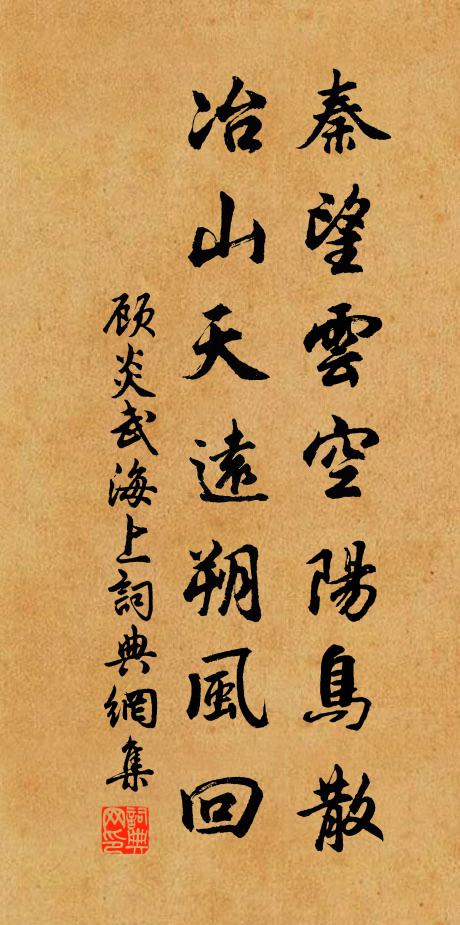 秦望雲空陽鳥散
冶山天遠朔風回
顾炎武海上詞典網集
詞典网印